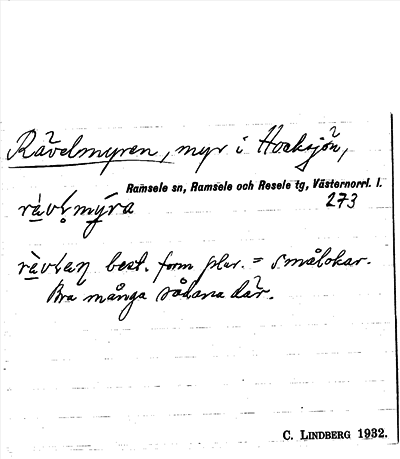 Rävelmyren, myr i Hocksjön,
Ramsele sn, Ramsele och Resele tg, Västernorrl. l.
273
best. form plur. = småtokar.
Bra många sådana där.
C. LINDBERG 1932.